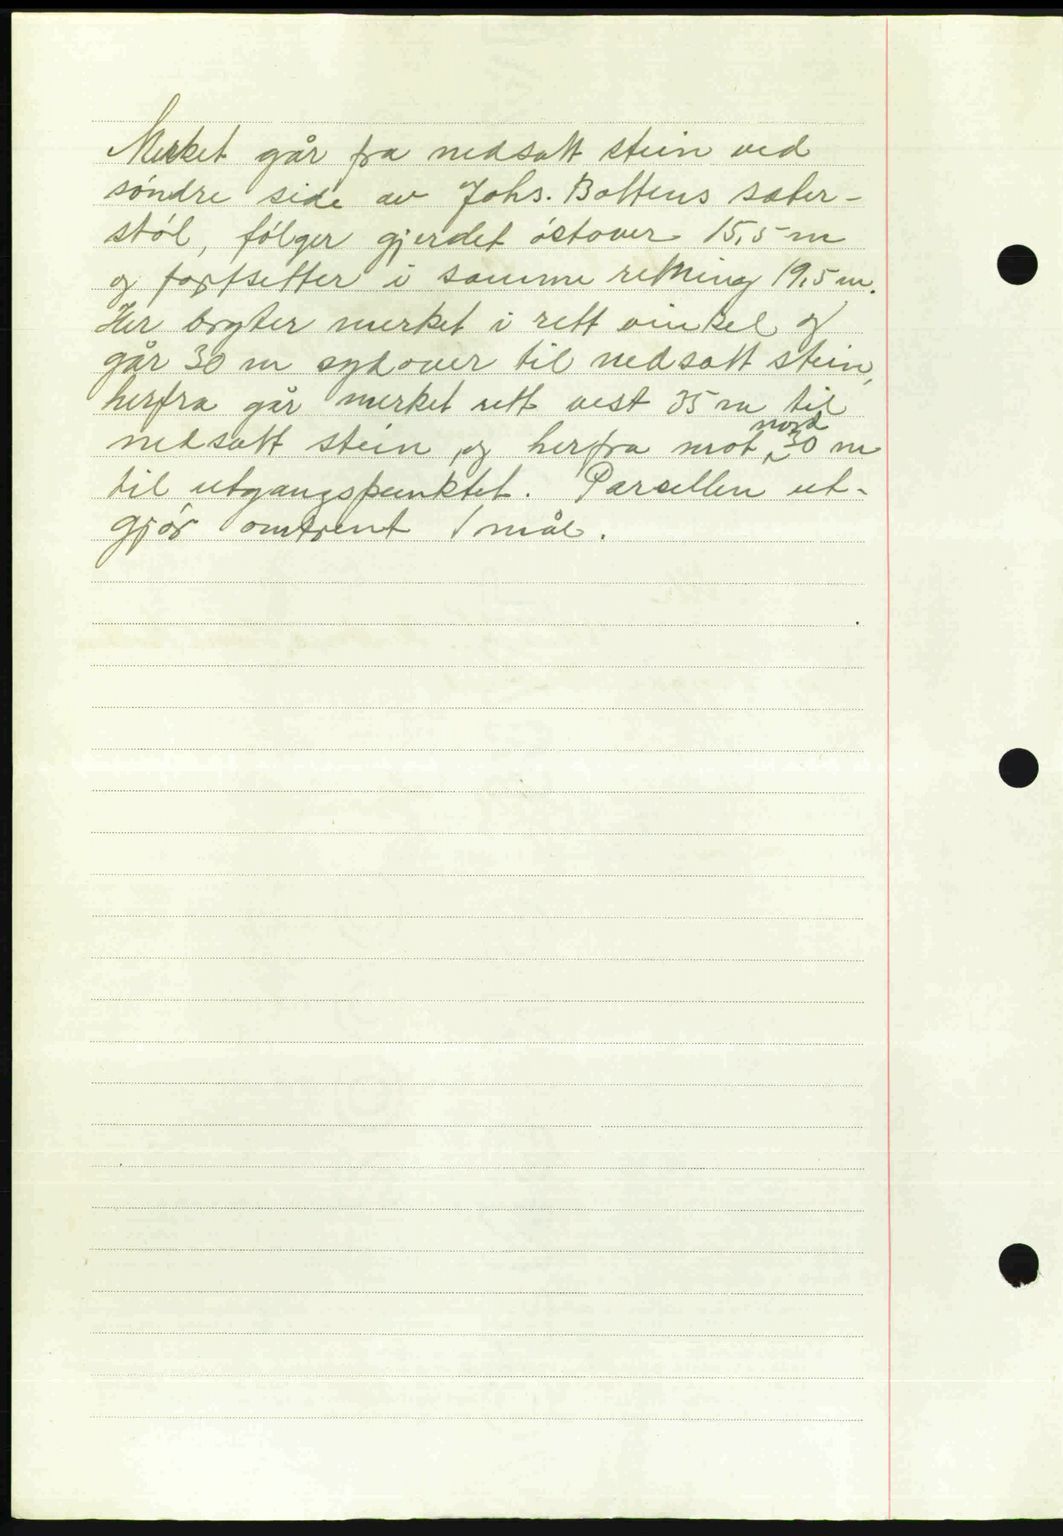 Merket går fra nedsatt stein ved
søndre side av Johs. Bottens sæter-
støl, følger gjerdet østover 15,5 m
og fortsetter i samme retning 19,5 m.
Her bryter merket i rett vinkel og
går 30 m sydover til nedsatt stein,
herfra går merket rett vest 35 m til
nedsatt stein, og herfra mot nord 30 m
til utgangspunktet. Parsellen ut-
gjør omtrent 1 mål.